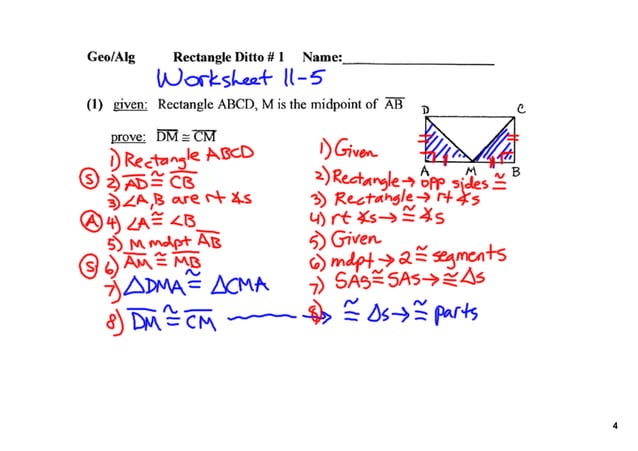 Geo/Alg Rectangle Ditto # 1 Name:
Worksheet 11-5
(1) given: Rectangle ABCD, M is the midpoint of AB
D C
A M B
prove: DM ≅ CM
1) Rectangle ABCD 1) Given
Ⓢ 2) AD ≅ CB 2) Rectangle → opp sides ≅
3) ∠A, B are rt ∡s 3) Rectangle → rt ∡s
Ⓐ 4) ∠A ≅ ∠B 4) rt ∡s → ≅ ∡s
5) M mdpt AB 5) Given
Ⓢ 6) AM ≅ MB 6) mdpt → 2 ≅ segments
7) △DMA ≅ △CMA 7) SAS ≅ SAS → ≅ △s
8) DM ≅ CM → 8) ≅ △s → ≅ parts
4